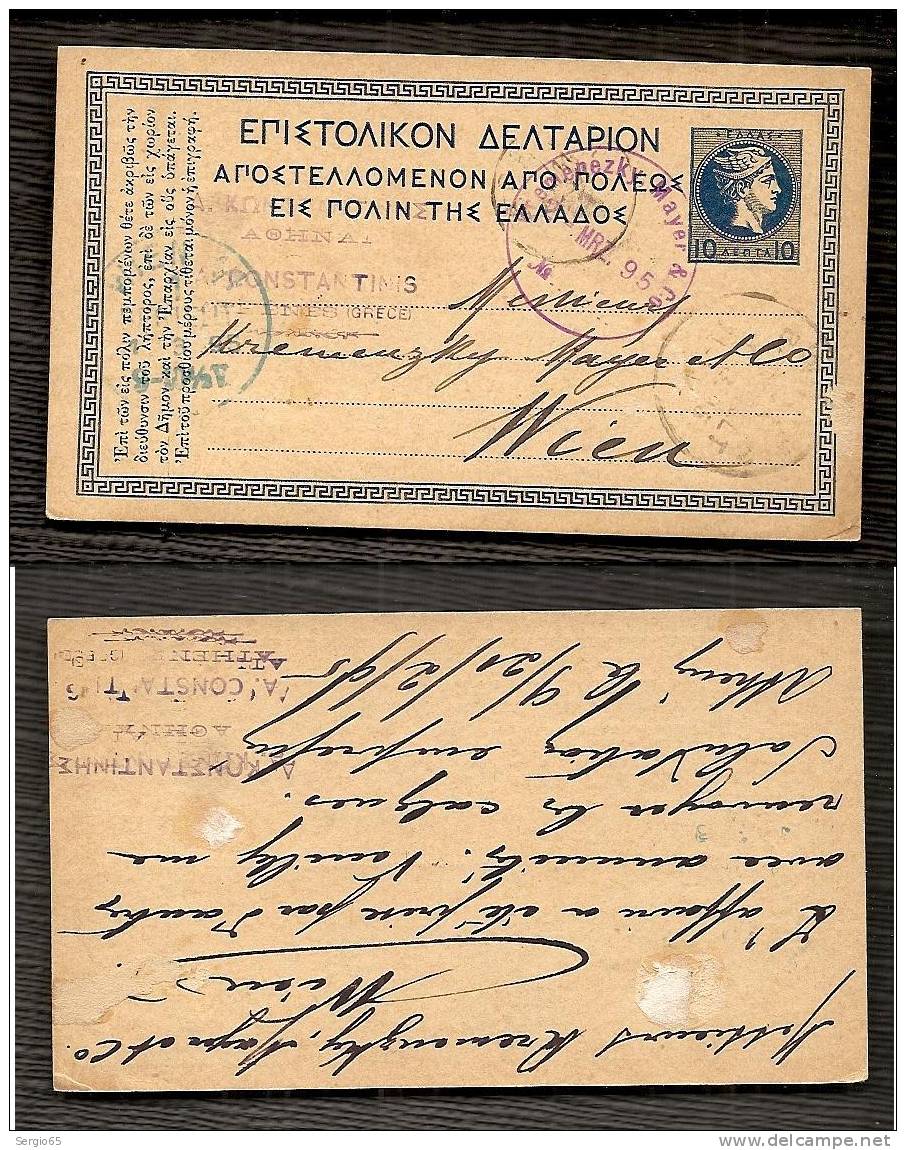 ΕΠΙΣΤΟΛΙΚΟΝ ΔΕΛΤΑΡΙΟΝ
ΑΠΟΣΤΕΛΛΟΜΕΝΟΝ ΑΠΟ ΠΟΛΕΩΣ
ΕΙΣ ΠΟΛΙΝ ΤΗΣ ΕΛΛΑΔΟΣ
Ἐπὶ τῶν εἰς πόλιν πεμπομένων θέτε ἀκριβῶς τὴν
διεύθυνσιν τοῦ λήπτορος, ἐπὶ δὲ τῶν εἰς χωρίον
τὸν Δῆμον καὶ τὴν Ἐπαρχίαν εἰς οὓς ὑπάγεται.
Ἐπὶ τοῦ προσθίου μέρους τίθεται μόνον ἡ ἐπιγραφή.
ΕΛΛΑΣ
10 ΛΕΠΤΑ 10
Mayer & Co
MRZ. 95
No
ΑΘΗΝΑΙ
CONSTANTINIS
(GRECE)
Messieurs
Kremenezky Mayer et Co
Wien
Messieurs Kremenezky, Mayer et Co.
Wien
L'affaire a été prise par d'autres
avec
renvoyer les
Salutations empressées
Athènes le 9/21/2/95
Α. ΚΩΝΣΤΑΝΤΙΝΗΣ
ΑΘΗΝΑΙ
A. CONSTANTINIS
ATHENES
Sergio65
delcampe.net